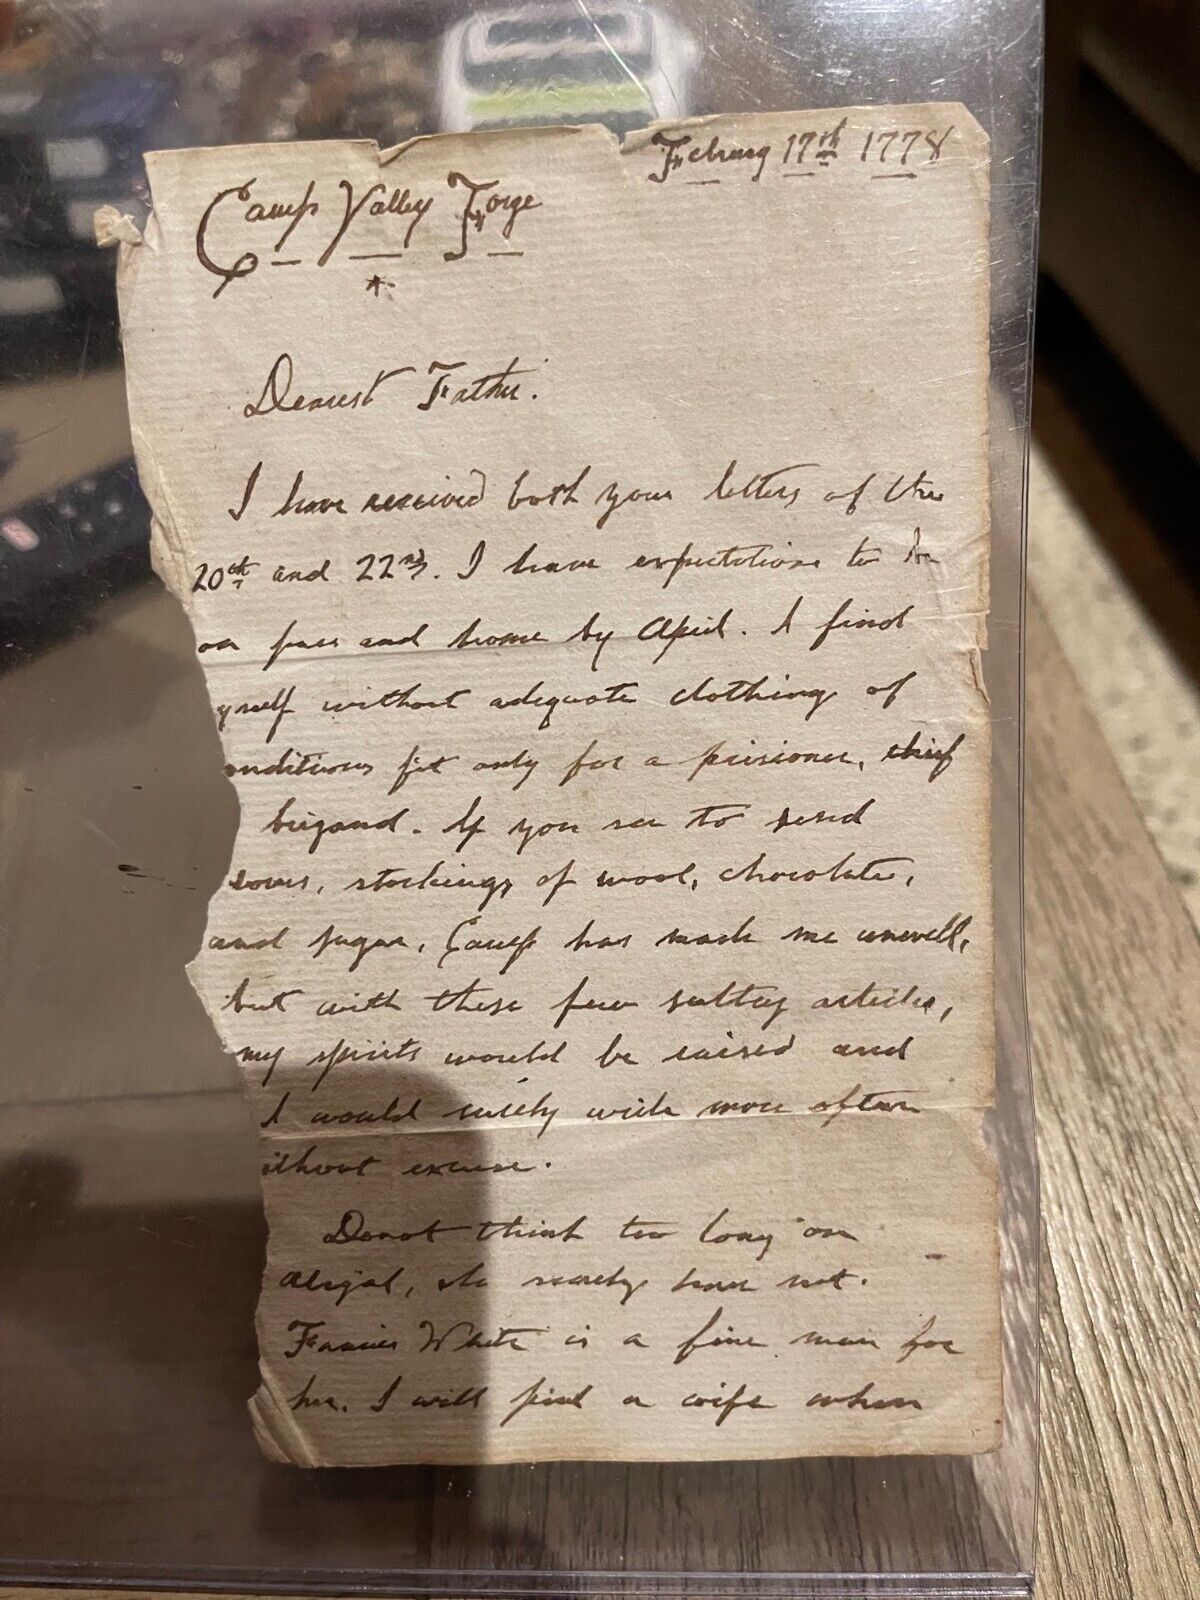 February 17th 1778
Camp Valley Forge
Dearest Father.
I have received both your letters of the
20th and 22nd. I have expectations to be
on pass and home by April. I find
yself without adequate clothing of
onditions fit only for a prisioner, thief
brigand. If you see to send
stockings of wool, chocolate,
and sugar, Camp has made me unwell,
but with these few sultry articles,
my spirits would be raised and
I would surely write more often
ithout excuse.
Donot think too long on
Abigal, she surely have not.
Francis White is a fine man for
her. I will find a wife when